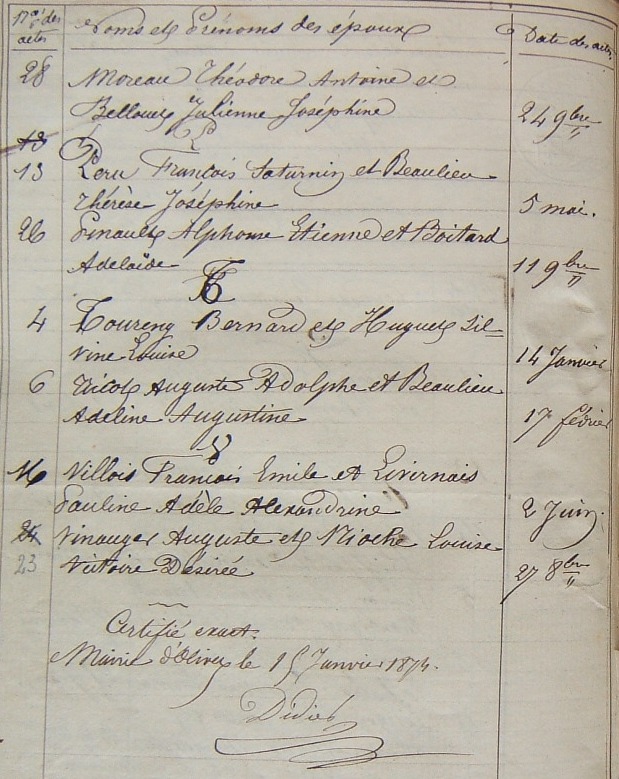 Nos des actes Noms et Prénoms des époux Date des actes.
28 Moreau Théodore Antoine et
Julienne Joséphine 24 9bre
P
13
13 Peru François Saturnin et Beaulieu
Thérèse Joséphine 5 mai.
26 Pinault Alphonse Etienne et Boitard
Adelaïde 11 9bre
T
4 Toureny Bernard et Huguet Sil=
vine Louise 14 Janvier
6 Tricot Auguste Adolphe et Beaulieu
Adeline Augustine 17 février
V
16 Villois François Emile et Livernais
Pauline Adèle Alexandrine 2 Juin.
24 Vinauger Auguste et Rioche Louise
23 Victoire Désirée 27 8bre
Certifié exact.
Mairie d'Olivet le 15 Janvier 1874.
Didier